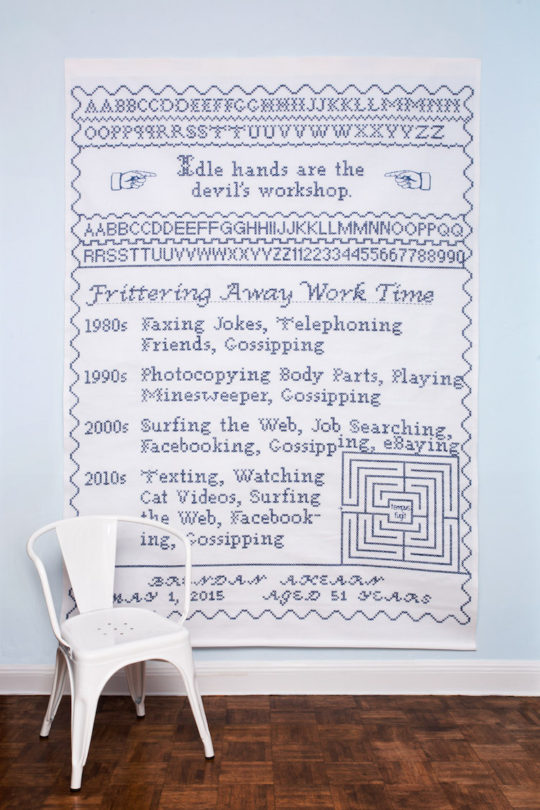 AABBCCDDEEFFGGHHIIJJKKLLMMNN
OOPPQQRRSSTTUUVVWWXXYYZZ
Idle hands are the
devil's workshop.
AABBCCDDEEFFGGHHIIJJKKLLMMNNOOPPQQ
RRSSTTUUVVWWXXYYZZ11223344556677889900
Frittering Away Work Time
1980s Faxing Jokes, Telephoning
Friends, Gossipping
1990s Photocopying Body Parts, Playing
Minesweeper, Gossipping
2000s Surfing the Web, Job Searching,
Facebooking, Gossipping, eBaying
2010s Texting, Watching
Cat Videos, Surfing
the Web, Facebook-
ing, Gossipping
Tempus
fugit
BRENDAN AHEARN
MAY 1, 2015 AGED 51 YEARS